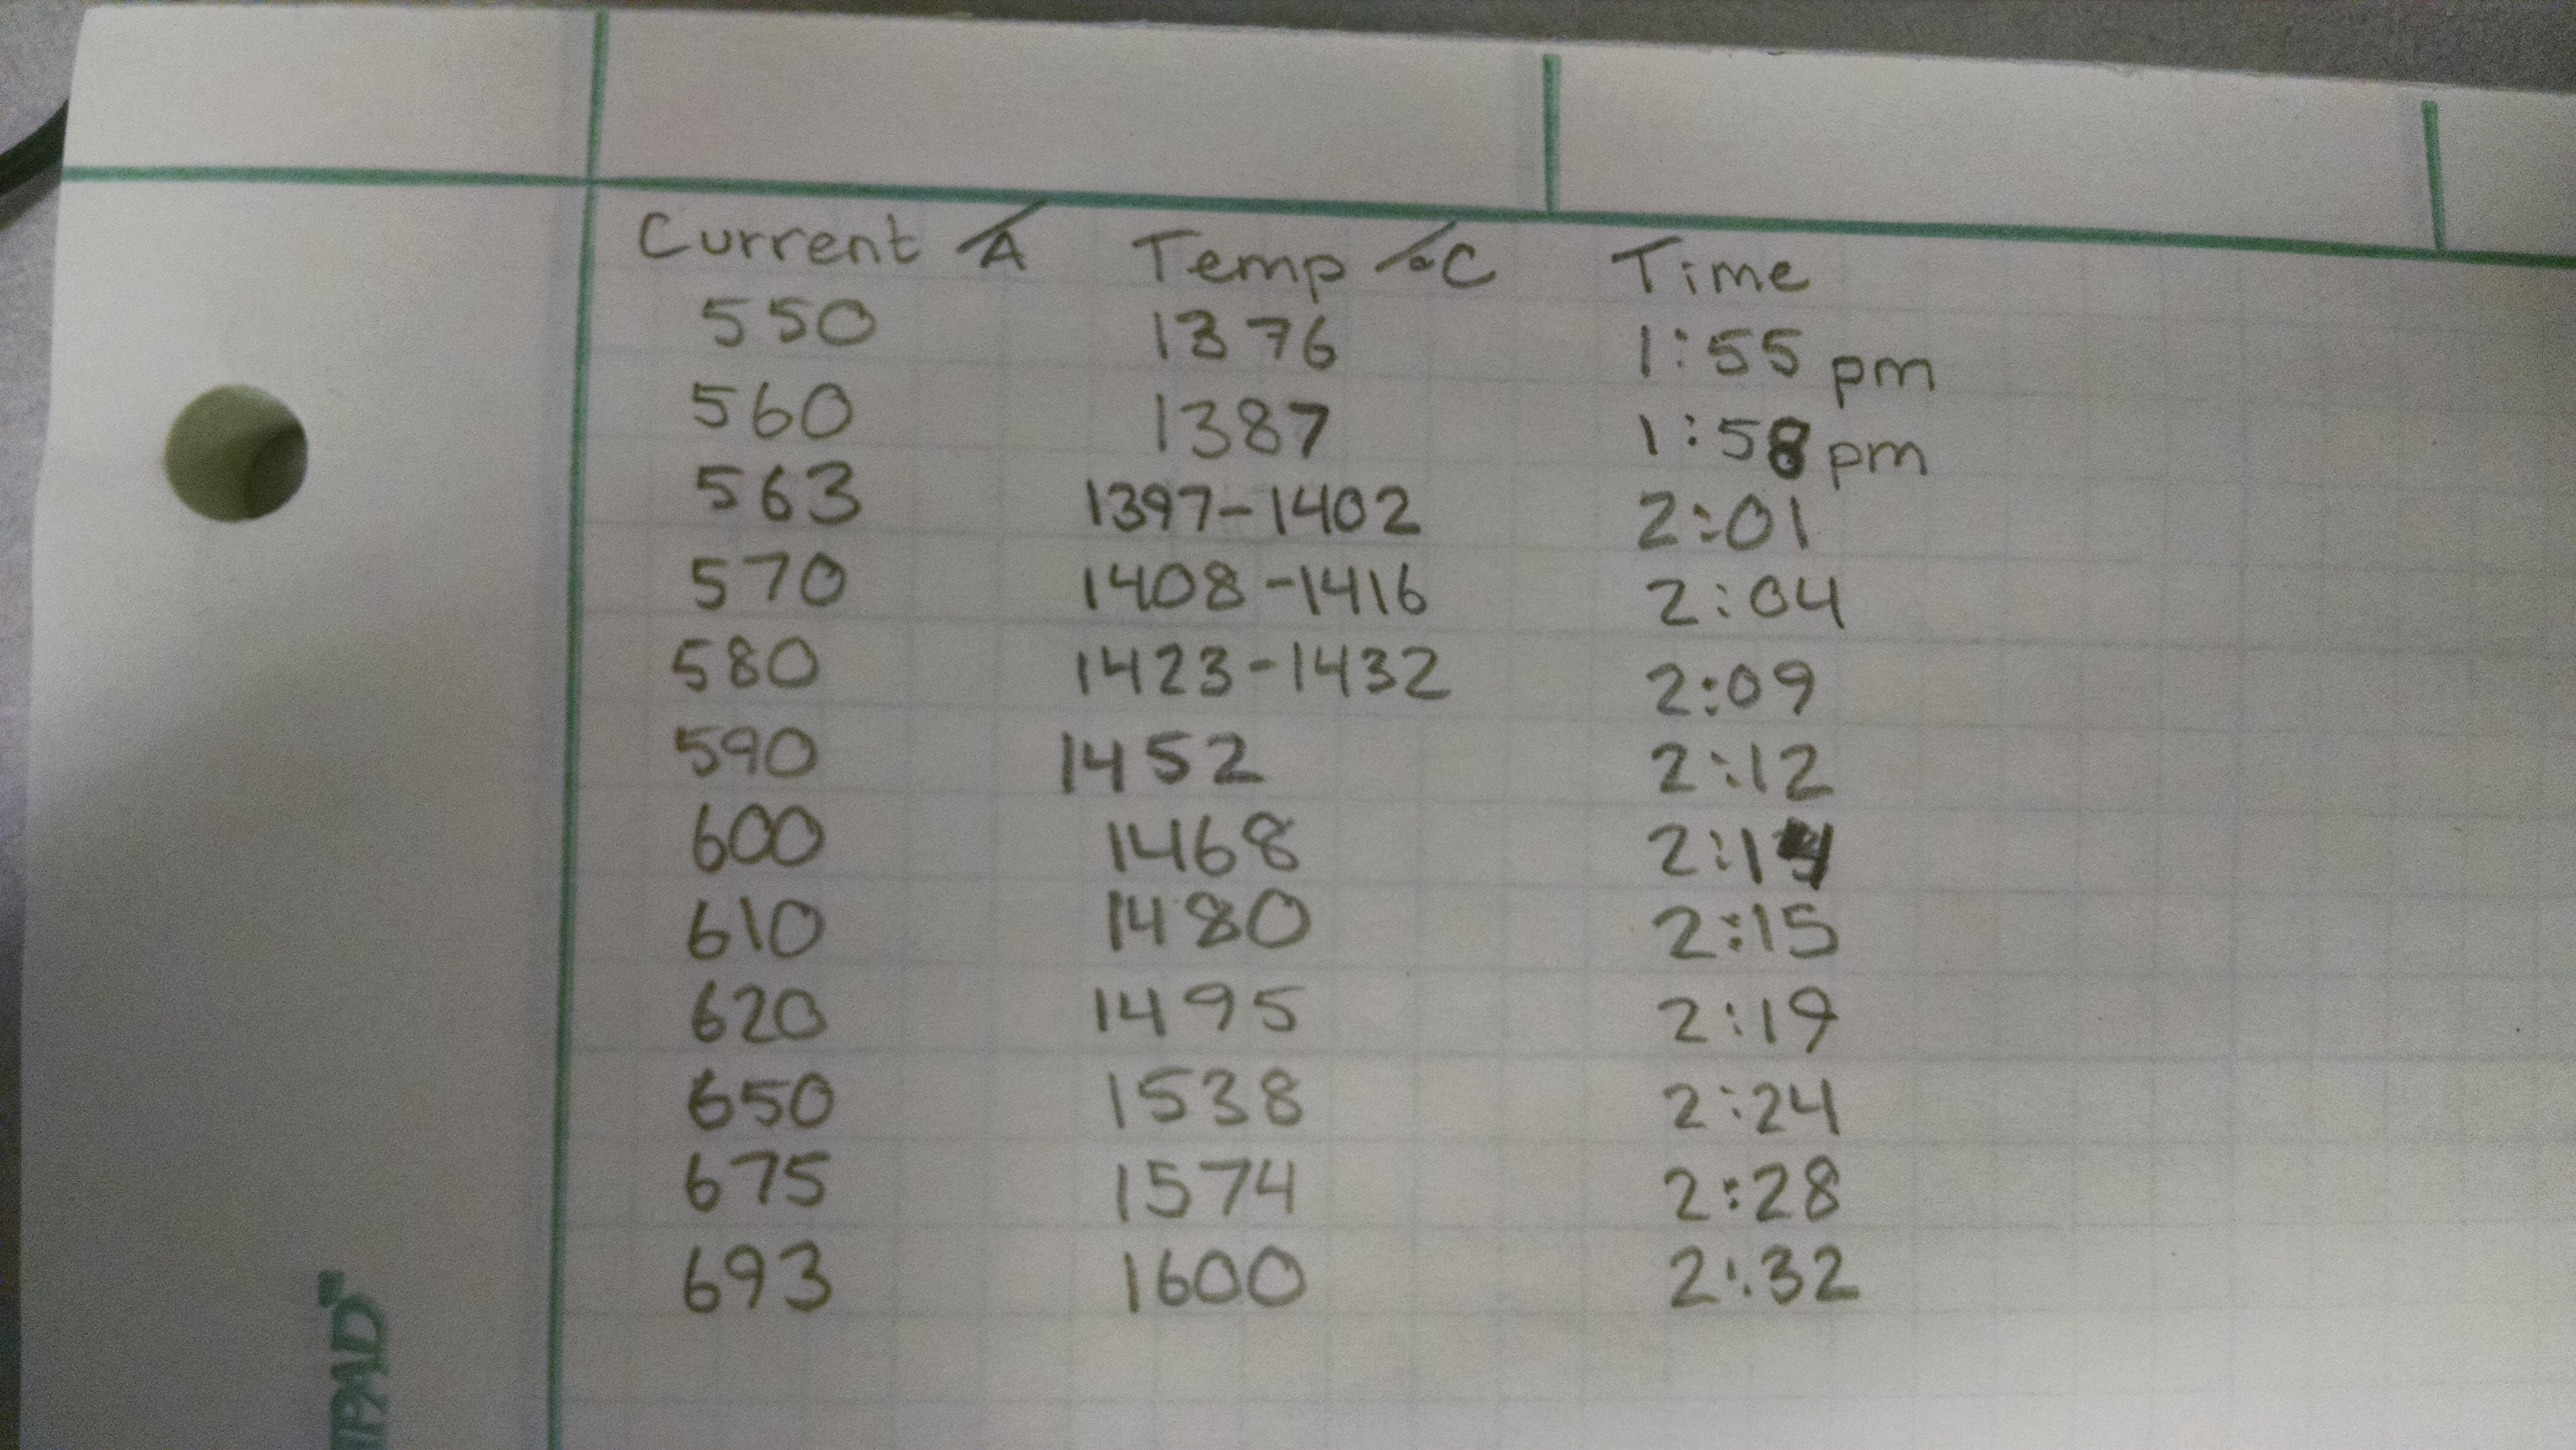 Current /A Temp /°C Time
550 1376 1:55 pm
560 1387 1:58 pm
563 1397-1402 2:01
570 1408-1416 2:04
580 1423-1432 2:09
590 1452 2:12
600 1468 2:14
610 1480 2:15
620 1495 2:19
650 1538 2:24
675 1574 2:28
693 1600 2:32